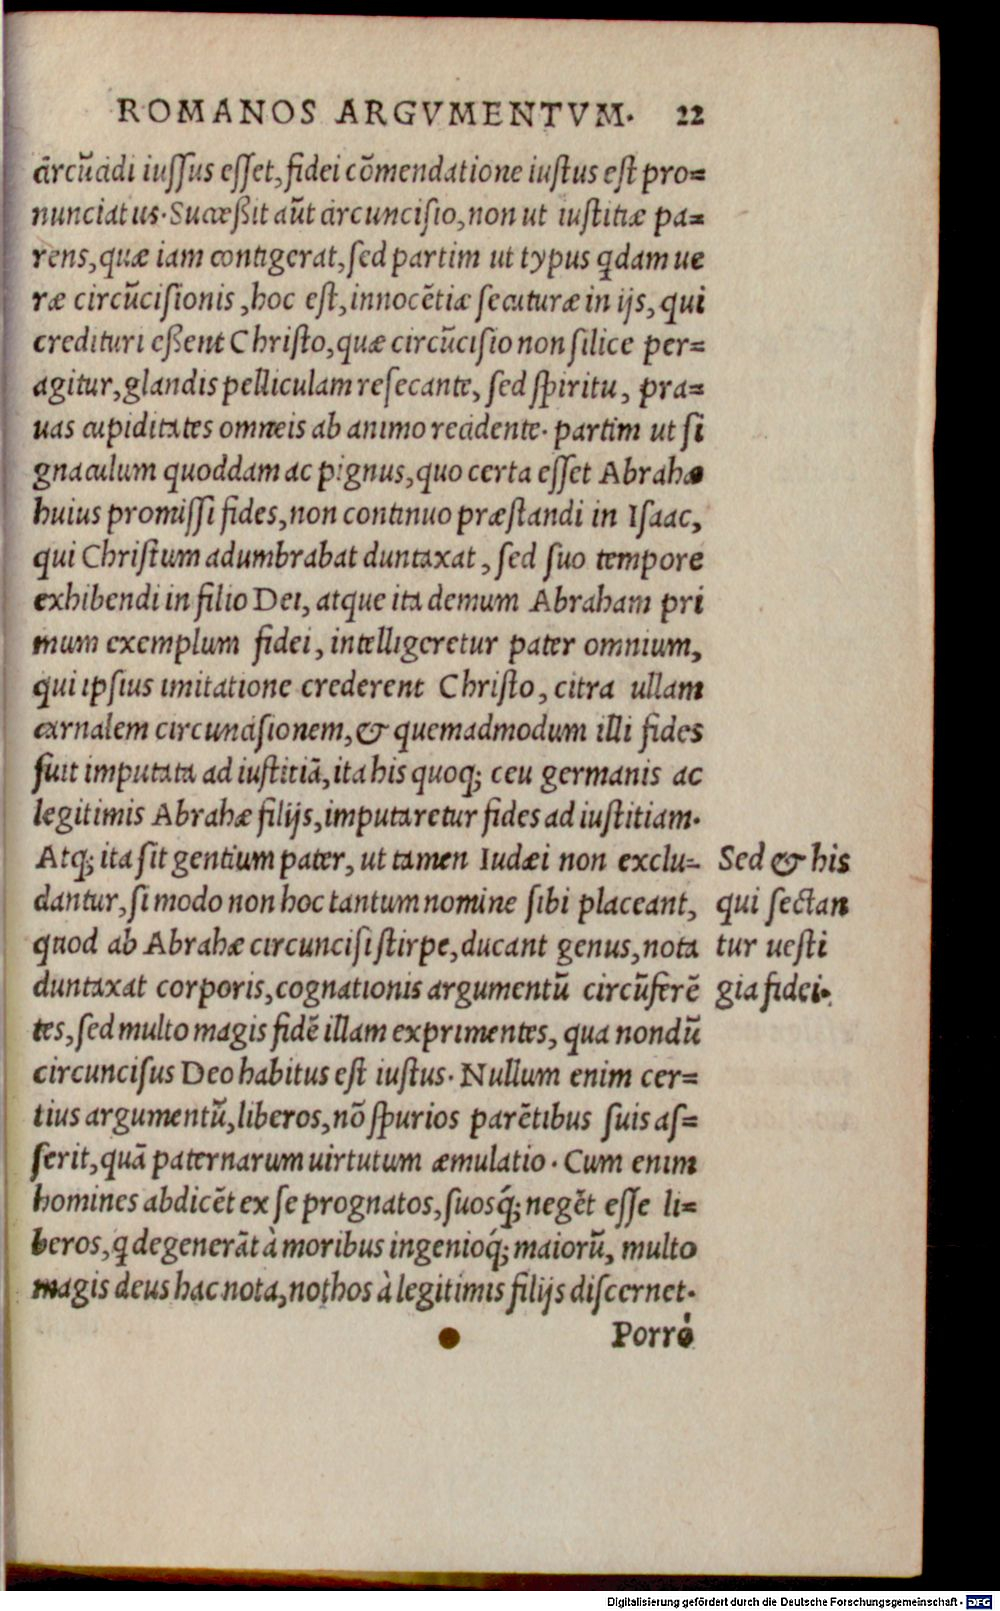 ROMANOS ARGVMENTVM. 22
circũcidi iuſſus eſſet, fidei cõmendatione iuſtus eſt pro=
nunciatus. Succeßit aũt circunciſio, non ut iuſtitiæ pa=
rens, quæ iam contigerat, ſed partim ut typus q̃dam ue
ræ circũciſionis, hoc eſt, innocẽtiæ ſecuturæ in ijs, qui
credituri eßent Chriſto, quæ circũciſio non ſilice per=
agitur, glandis pelliculam reſecante, ſed ſpiritu, pra=
uas cupiditates omneis ab animo recidente. partim ut ſi
gnaculum quoddam ac pignus, quo certa eſſet Abrahæ
huius promiſſi fides, non continuo præſtandi in Iſaac,
qui Chriſtum adumbrabat duntaxat, ſed ſuo tempore
exhibendi in filio Dei, atque ita demum Abraham pri
mum exemplum fidei, intelligeretur pater omnium,
qui ipſius imitatione crederent Chriſto, citra ullam
carnalem circunciſionem, & quemadmodum illi fides
fuit imputata ad iuſtitiã, ita his quoq; ceu germanis ac
legitimis Abrahæ filijs, imputaretur fides ad iuſtitiam.
Atq; ita ſit gentium pater, ut tamen Iudæi non exclu=
dantur, ſi modo non hoc tantum nomine ſibi placeant,
quod ab Abrahæ circunciſi ſtirpe, ducant genus, nota
duntaxat corporis, cognationis argumentũ circũferẽ
tes, ſed multo magis fidẽ illam exprimentes, qua nondũ
circunciſus Deo habitus eſt iuſtus. Nullum enim cer=
tius argumentũ, liberos, nõ ſpurios parẽtibus ſuis aſ=
ſerit, quã paternarum uirtutum æmulatio. Cum enim
homines abdicẽt ex ſe prognatos, ſuosq́; negẽt eſſe li=
beros, q̃ degenerãt à moribus ingenioq́; maiorũ, multo
magis deus hac nota, nothos à legitimis filijs diſcernet.
Porró
Sed & his
qui ſectan
tur ueſti
gia fidei.
Digitalisierung gefördert durch die Deutsche Forschungsgemeinschaft - DFG